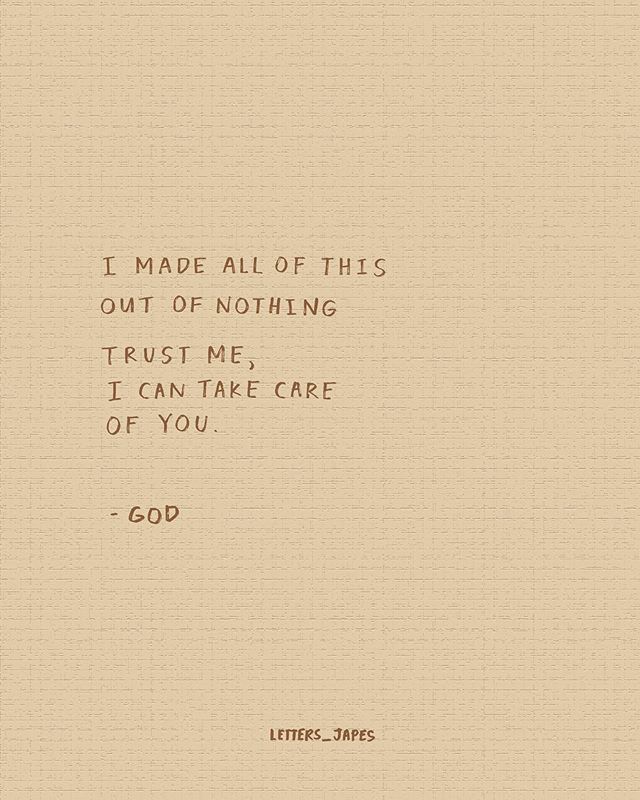 I MADE ALL OF THIS
OUT OF NOTHING
TRUST ME,
I CAN TAKE CARE
OF YOU.
- GOD
LETTERS_JAPES